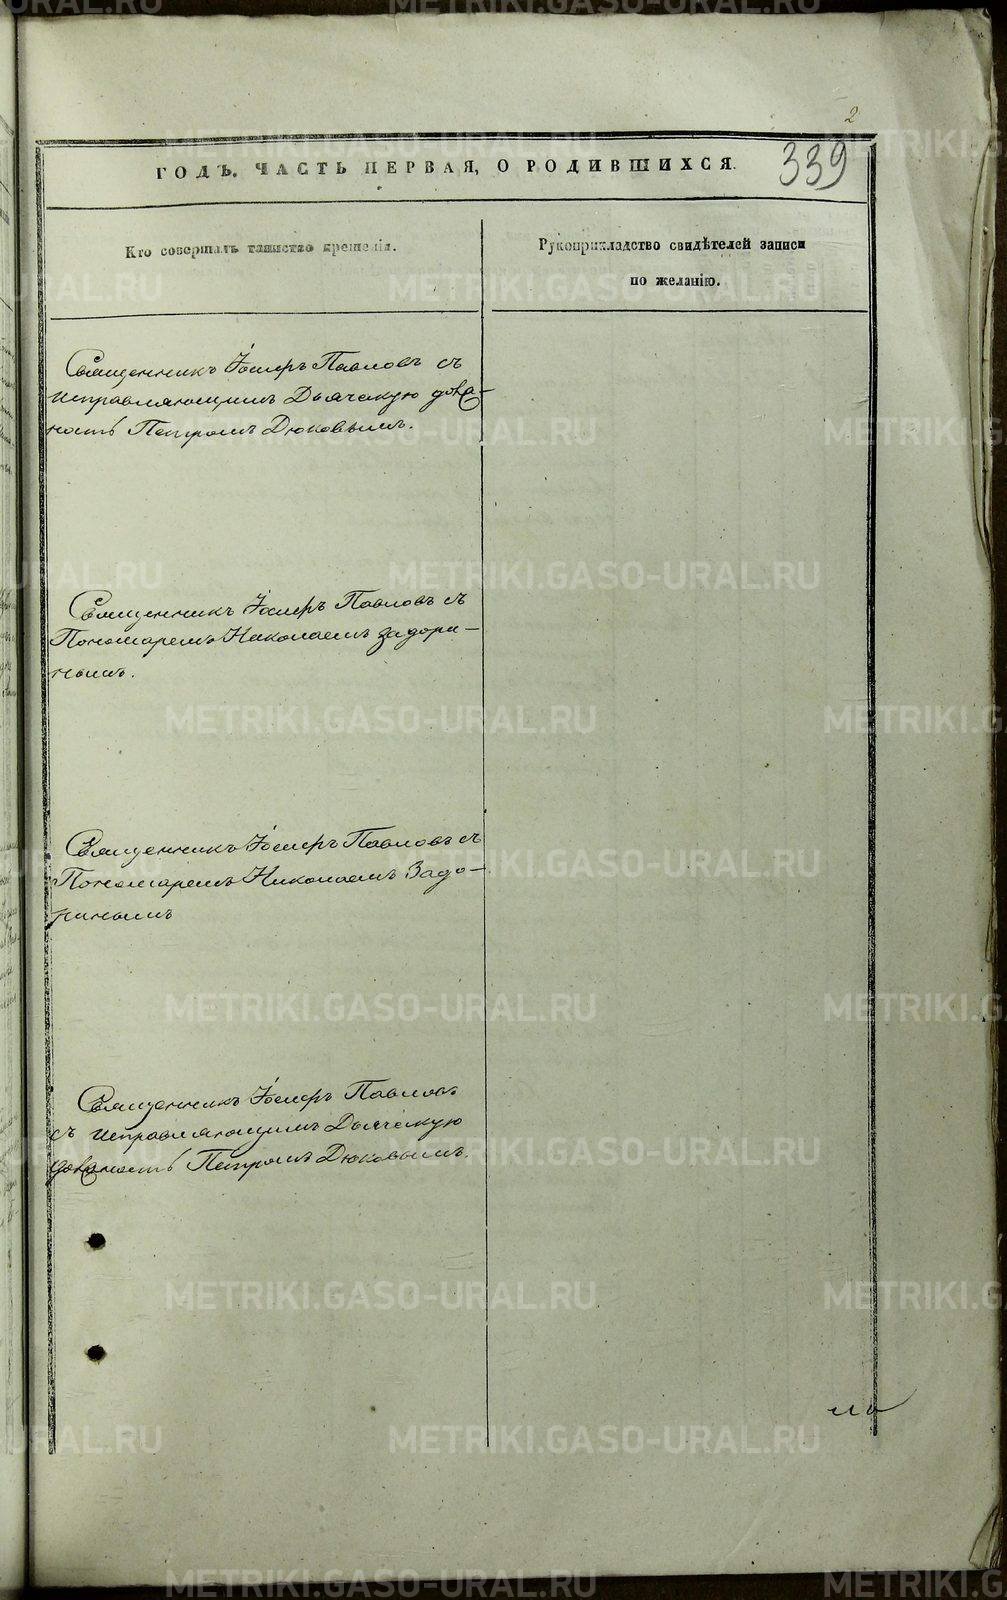 2
339
ГОДЪ. ЧАСТЬ ПЕРВАЯ, О РОДИВШИХСЯ.
Кто совершалъ таинство крещенія.
Рукоприкладство свидѣтелей записи
по желанію.
Священникъ Іосифъ Павловъ съ
исправляющимъ Дьячскую долж-
ность Петромъ Дюковымъ.
Священникъ Іосифъ Павловъ съ
Пономаремъ Николаемъ Задори-
нымъ.
Священникъ Іосифъ Павловъ съ
Пономаремъ Николаемъ Задо-
ринымъ
Священникъ Іосифъ Павловъ
съ исправляющимъ Дьячскую
должность Петромъ Дюковымъ.
METRIKI.GASO-URAL.RU